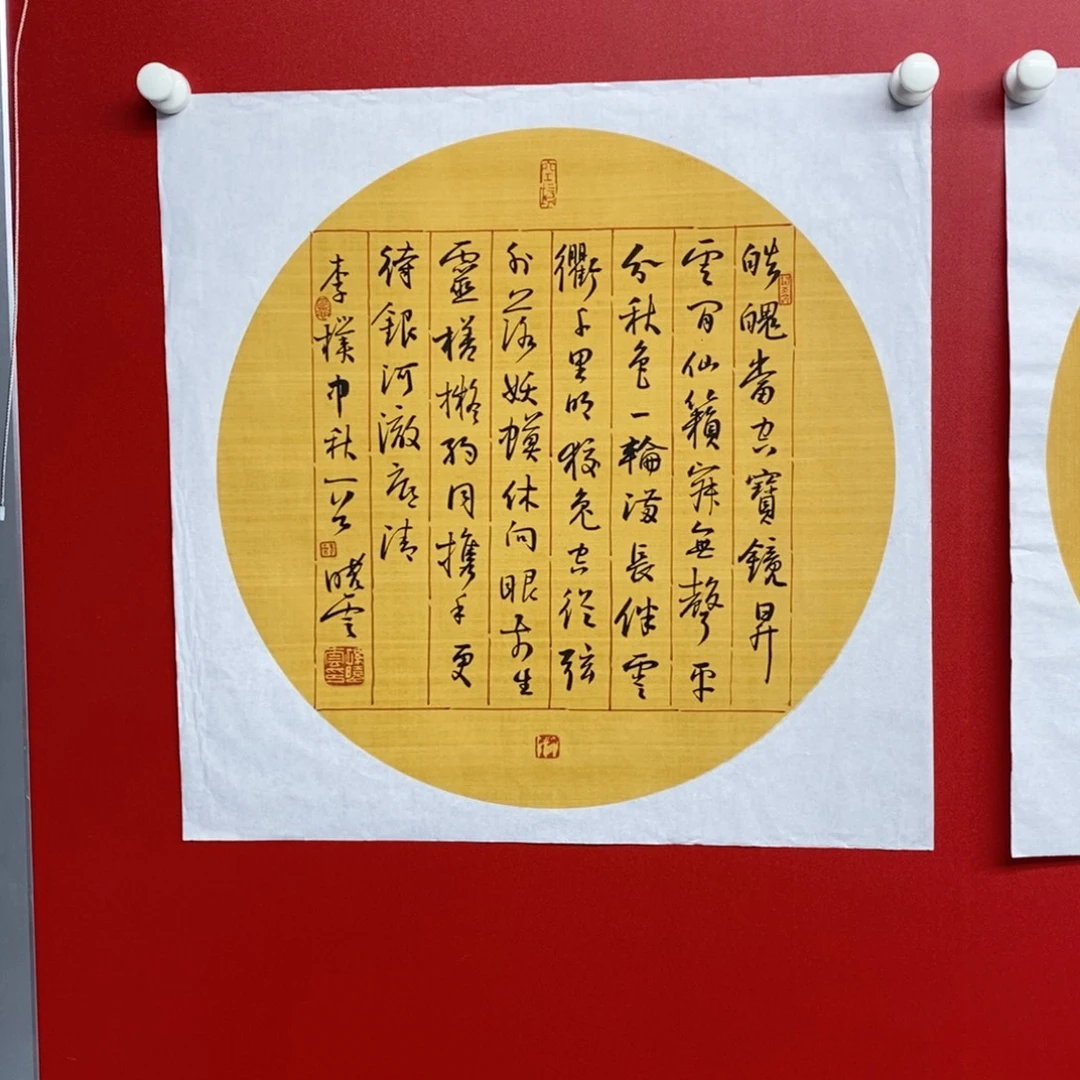 皓魄當空寶鏡昇
雲間仙籟寂無聲平
分秋色一輪滿長伴雲
衢千里明狡兔空從弦
外落妖蟆休向眼前生
靈槎擬約同攜手更
待銀河澈底清
李樸中秋一首 曉雲